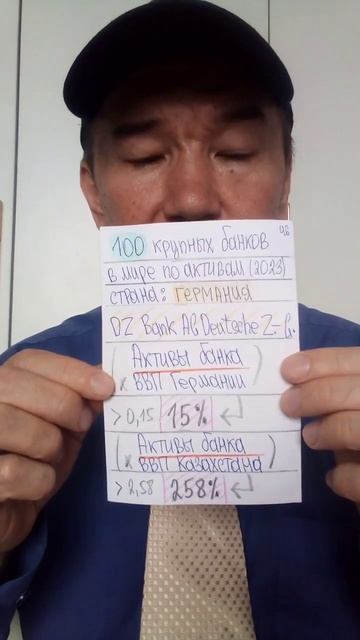 100 крупных банков
в мире по активам (2023)
страна: Германия
DZ Bank AG Deutsche Z-G.
Активы банка
ВВП Германии
> 0,15 15%
Активы банка
ВВП Казахстана
> 2,58 258%